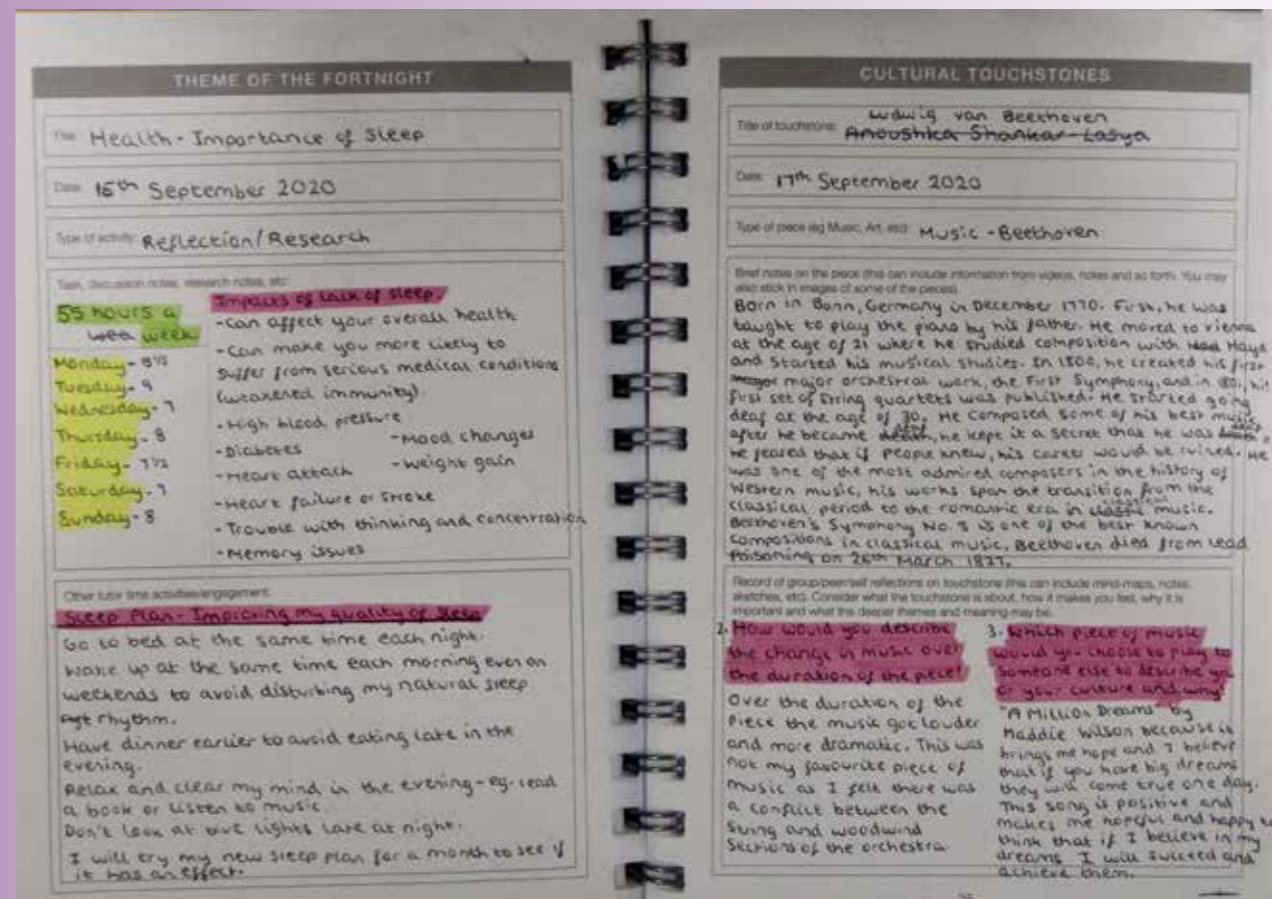 THEME OF THE FORTNIGHT
Title: Health - Importance of Sleep
Date: 16th September 2020
Type of activity: Reflection/Research
Task, discussion notes, research notes, etc:
55 hours a
wea week
Monday - 8½
Tuesday - 9
Wednesday - 7
Thursday - 8
Friday - 7½
Saturday - 7
Sunday - 8
Impacts of lack of sleep:
- Can affect your overall health
- Can make you more likely to
suffer from serious medical conditions
(weakened immunity).
- High blood pressure
- Diabetes
- Heart attack
- Mood changes
- Weight gain
- Heart failure or stroke
- Trouble with thinking and concentration
- Memory issues
Other tutor time activities/engagement:
Sleep Plan - Improving my quality of sleep
Go to bed at the same time each night.
Wake up at the same time each morning even on
weekends to avoid disturbing my natural sleep
rhythm.
Have dinner earlier to avoid eating late in the
evening.
Relax and clear my mind in the evening - eg. read
a book or listen to music.
Don't look at blue lights late at night.
I will try my new sleep plan for a month to see if
it has an effect.
CULTURAL TOUCHSTONES
Ludwig van Beethoven
Title of touchstone: Anoushka Shankar - Lasya
Date: 17th September 2020
Type of piece (eg Music, Art, etc): Music - Beethoven
Brief notes on the piece (this can include information from videos, notes and so forth. You may
also stick in images of some of the pieces)
Born in Bonn, Germany in December 1770. First, he was
taught to play the piano by his father. He moved to Vienna
at the age of 21 where he studied composition with Hayd
and started his musical studies. In 1800, he created his first
major orchestral work, the First Symphony, and in 1801, his
first set of string quartets was published. He started going
deaf at the age of 30. He composed some of his best music
after he became deaf, he kept it a secret that he was deaf
he feared that if people knew, his career would be ruined. He
was one of the most admired composers in the history of
Western music, his works span the transition from the
classical period to the romantic era in classical music.
Beethoven's Symphony No. 5 is one of the best known
compositions in classical music. Beethoven died from lead
poisoning on 26th March 1827.
Record of group/peer/self reflections on touchstone (this can include mind-maps, notes,
sketches, etc). Consider what the touchstone is about, how it makes you feel, why it is
important and what the deeper themes and meaning may be.
2. How would you describe
the change in music over
the duration of the piece?
Over the duration of the
piece the music got louder
and more dramatic. This was
not my favourite piece of
music as I felt there was
a conflict between the
string and woodwind
sections of the orchestra.
3. Which piece of music
would you choose to play to
someone else to describe you
or your culture and why?
"A Million Dreams" by
Maddie Wilson because it
brings me hope and I believe
that if you have big dreams
they will come true one day.
This song is positive and
makes me hopeful and happy to
think that if I believe in my
dreams I will succeed and
achieve them.